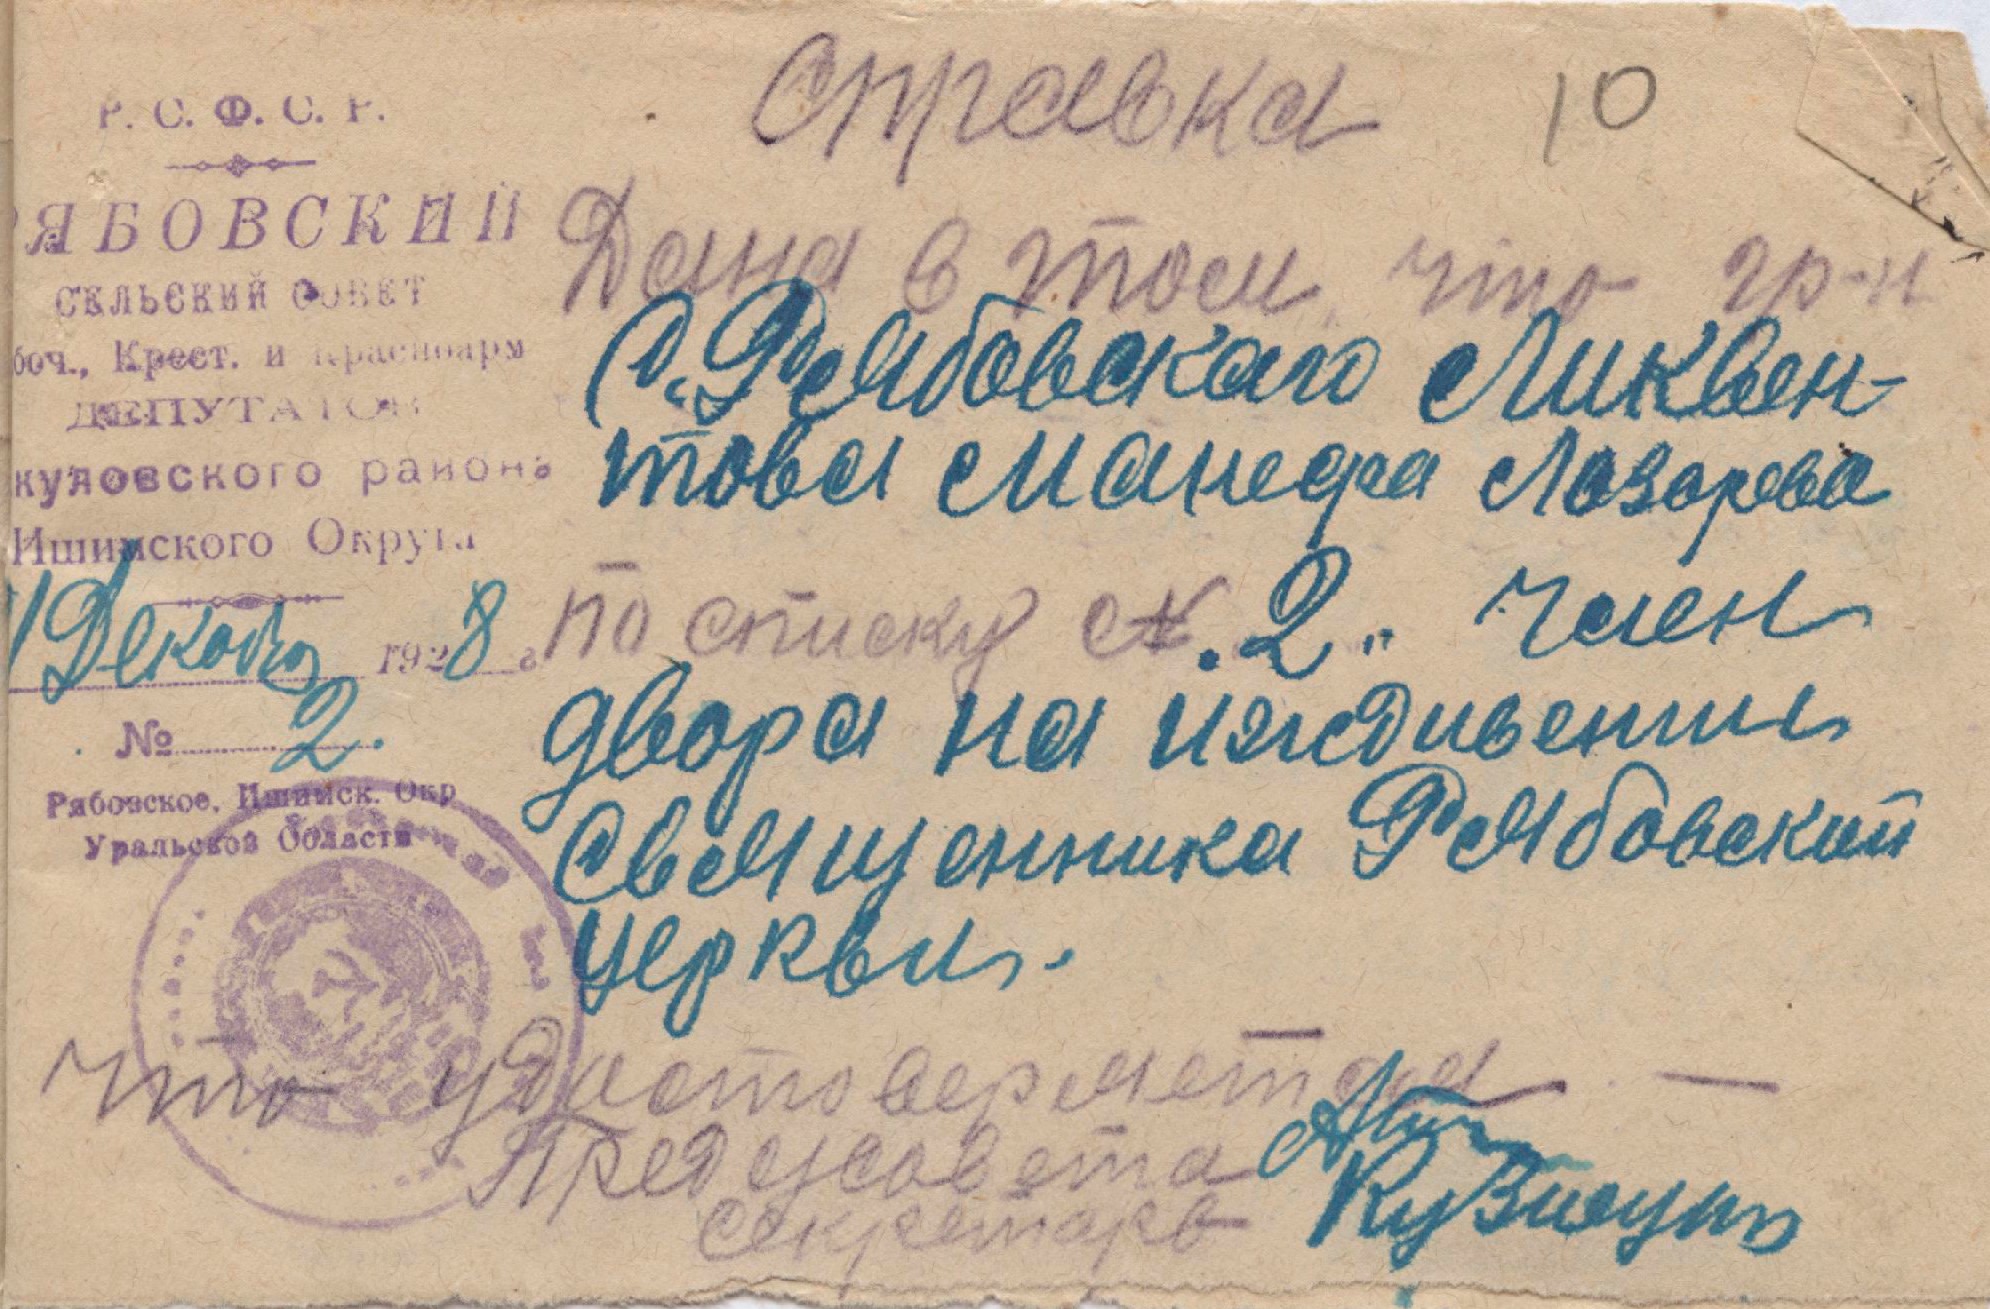 Р. С. Ф. С. Р.
РЯБОВСКИЙ
СЕЛЬСКИЙ СОВЕТ
боч., Крест. и Красноарм
ДЕПУТАТОВ
куловского района
Ишимского Округа
1 Декабр 1928 г
№ 2.
Рябовское, Ишимск. Окр
Уральской Области
Справка
10
Дана в том, что гр-н
С. Рябовскаго Ликвен-
това Манефа Лозорева
по списку № .2." член
двора на иждивении
Священника Рябовский
церкви.
что удостоверяется —
Предсовета
секретарь